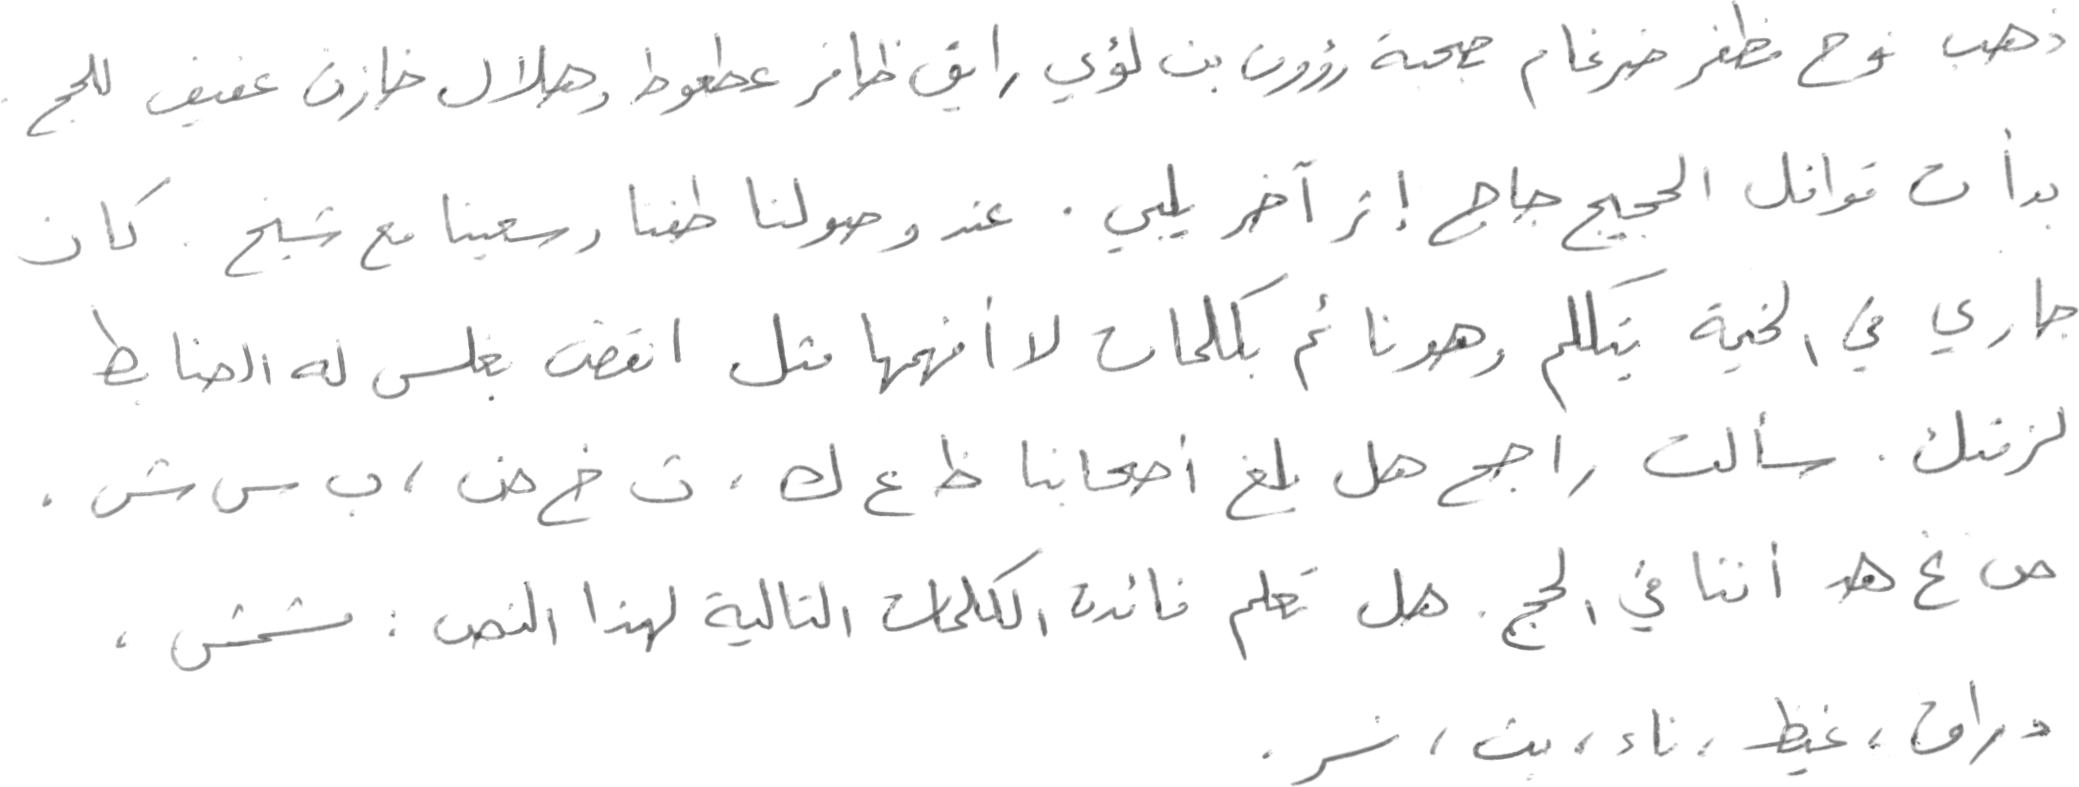 ذهب نوح مظفر ضرغام صحبة رؤوف بن لؤي رايق ظافر عطعوط وهلال خازن عفيف للحج .
بدأت قوافل الحجيج حاج إثر آخر يلبي . عند وصولنا طفنا وسعينا مع شيخ . كان
جاري في الخيمة يتكلم وهو نائم بكلمات لا أفهمها مثل انقض بغلس له الضابط
لزقتك . سألت راجح هل بلغ أصحابنا ظ ع ك ، ث خ ض ، ب س ش .
ص غ هـ أننا في الحج . هل تعلم فائدة الكلمات التالية لهذا النص : مشمش ،
دراق ، غيظ ، ناء ، بث ، نسر .